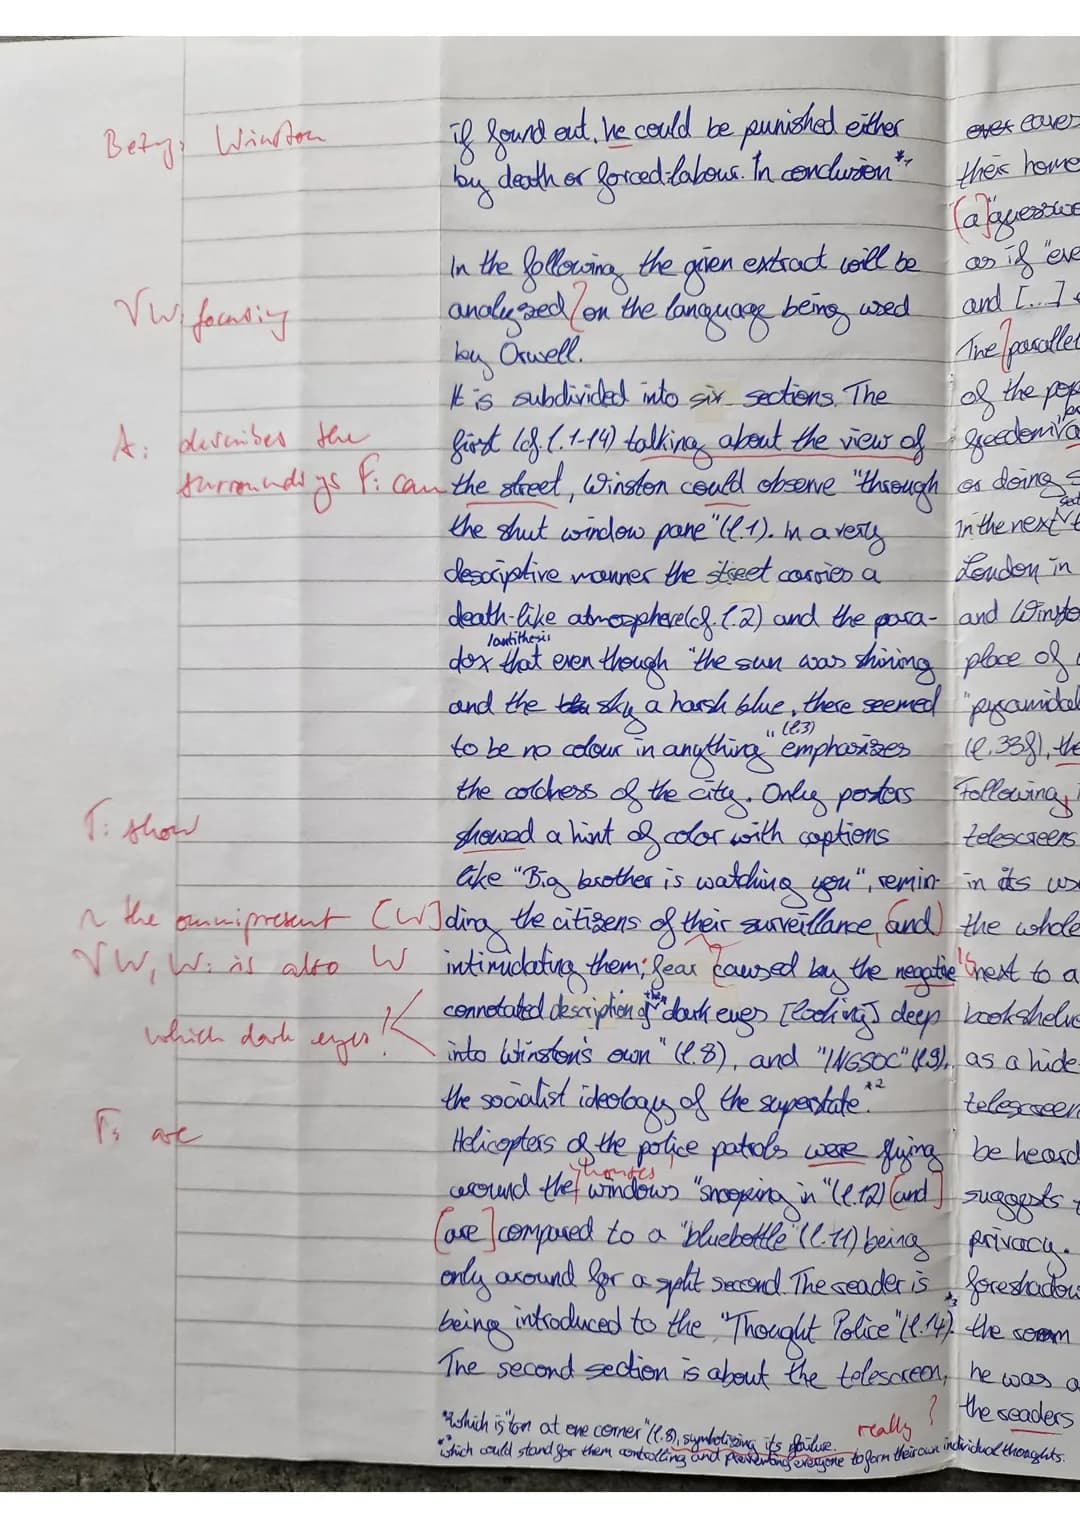 Bezug: Winston
if found out, he could be punished either
by death or forced-labour. In conclusion*1
In the following the given extract will be
VW, focusing
analyzed on the language being used
by Orwell.
It is subdivided into six sections. The
A: describes the
first (cf. l. 1-14) talking about the view of
surroundings T: can
the street, Winston could observe "through
the shut window pane" (l.1). In a very
descriptive manner the street carries a
death-like atmosphere (cf. l.2) and the para-
/antithesis
dox that even though "the sun was shining
and the sky a harsh blue, there seemed
to be no colour in anything" (l.3) emphasizes
the coldness of the city. Only posters
T: show
showed a hint of color with captions
like "Big brother is watching you", remin-
~ the omnipresent (W)
ding the citizens of their surveillance, (and)
VW, W: is also W
intimidating them; fear caused by the negative
connotated description of the "dark eyes [looking] deep
which dark eyes!
into Winston's own" (l.8), and "INGSOC" (l.9),
the socialist ideology of the superstate.*2
T: are
Helicopters of the police patrols were flying
around the houses' windows "snooping in" (l.12) (and)
(are) compared to a "bluebottle" (l.11) being
only around for a split second. The reader is
being introduced to the "Thought Police" (l.14).*3
The second section is about the telescreen,
*2 which is "torn at one corner" (l.8), symbolizing its failure. really?
*3 which could stand for them controlling and preventing everyone to form their own individual thoughts.
ever eaves
their home
(a) "guesswo
as if "eve
and [...]
The parallel
of the pop
freedom
or doing
In the next
London in
and Winsto
place of
"pyramidal
(l.33f), the
Following
telescreens
in its us
the whole
next to a
bookshelve
as a hide
telescreen
be heard
suggests
privacy.
foreshadow
the room
he was a
the readers